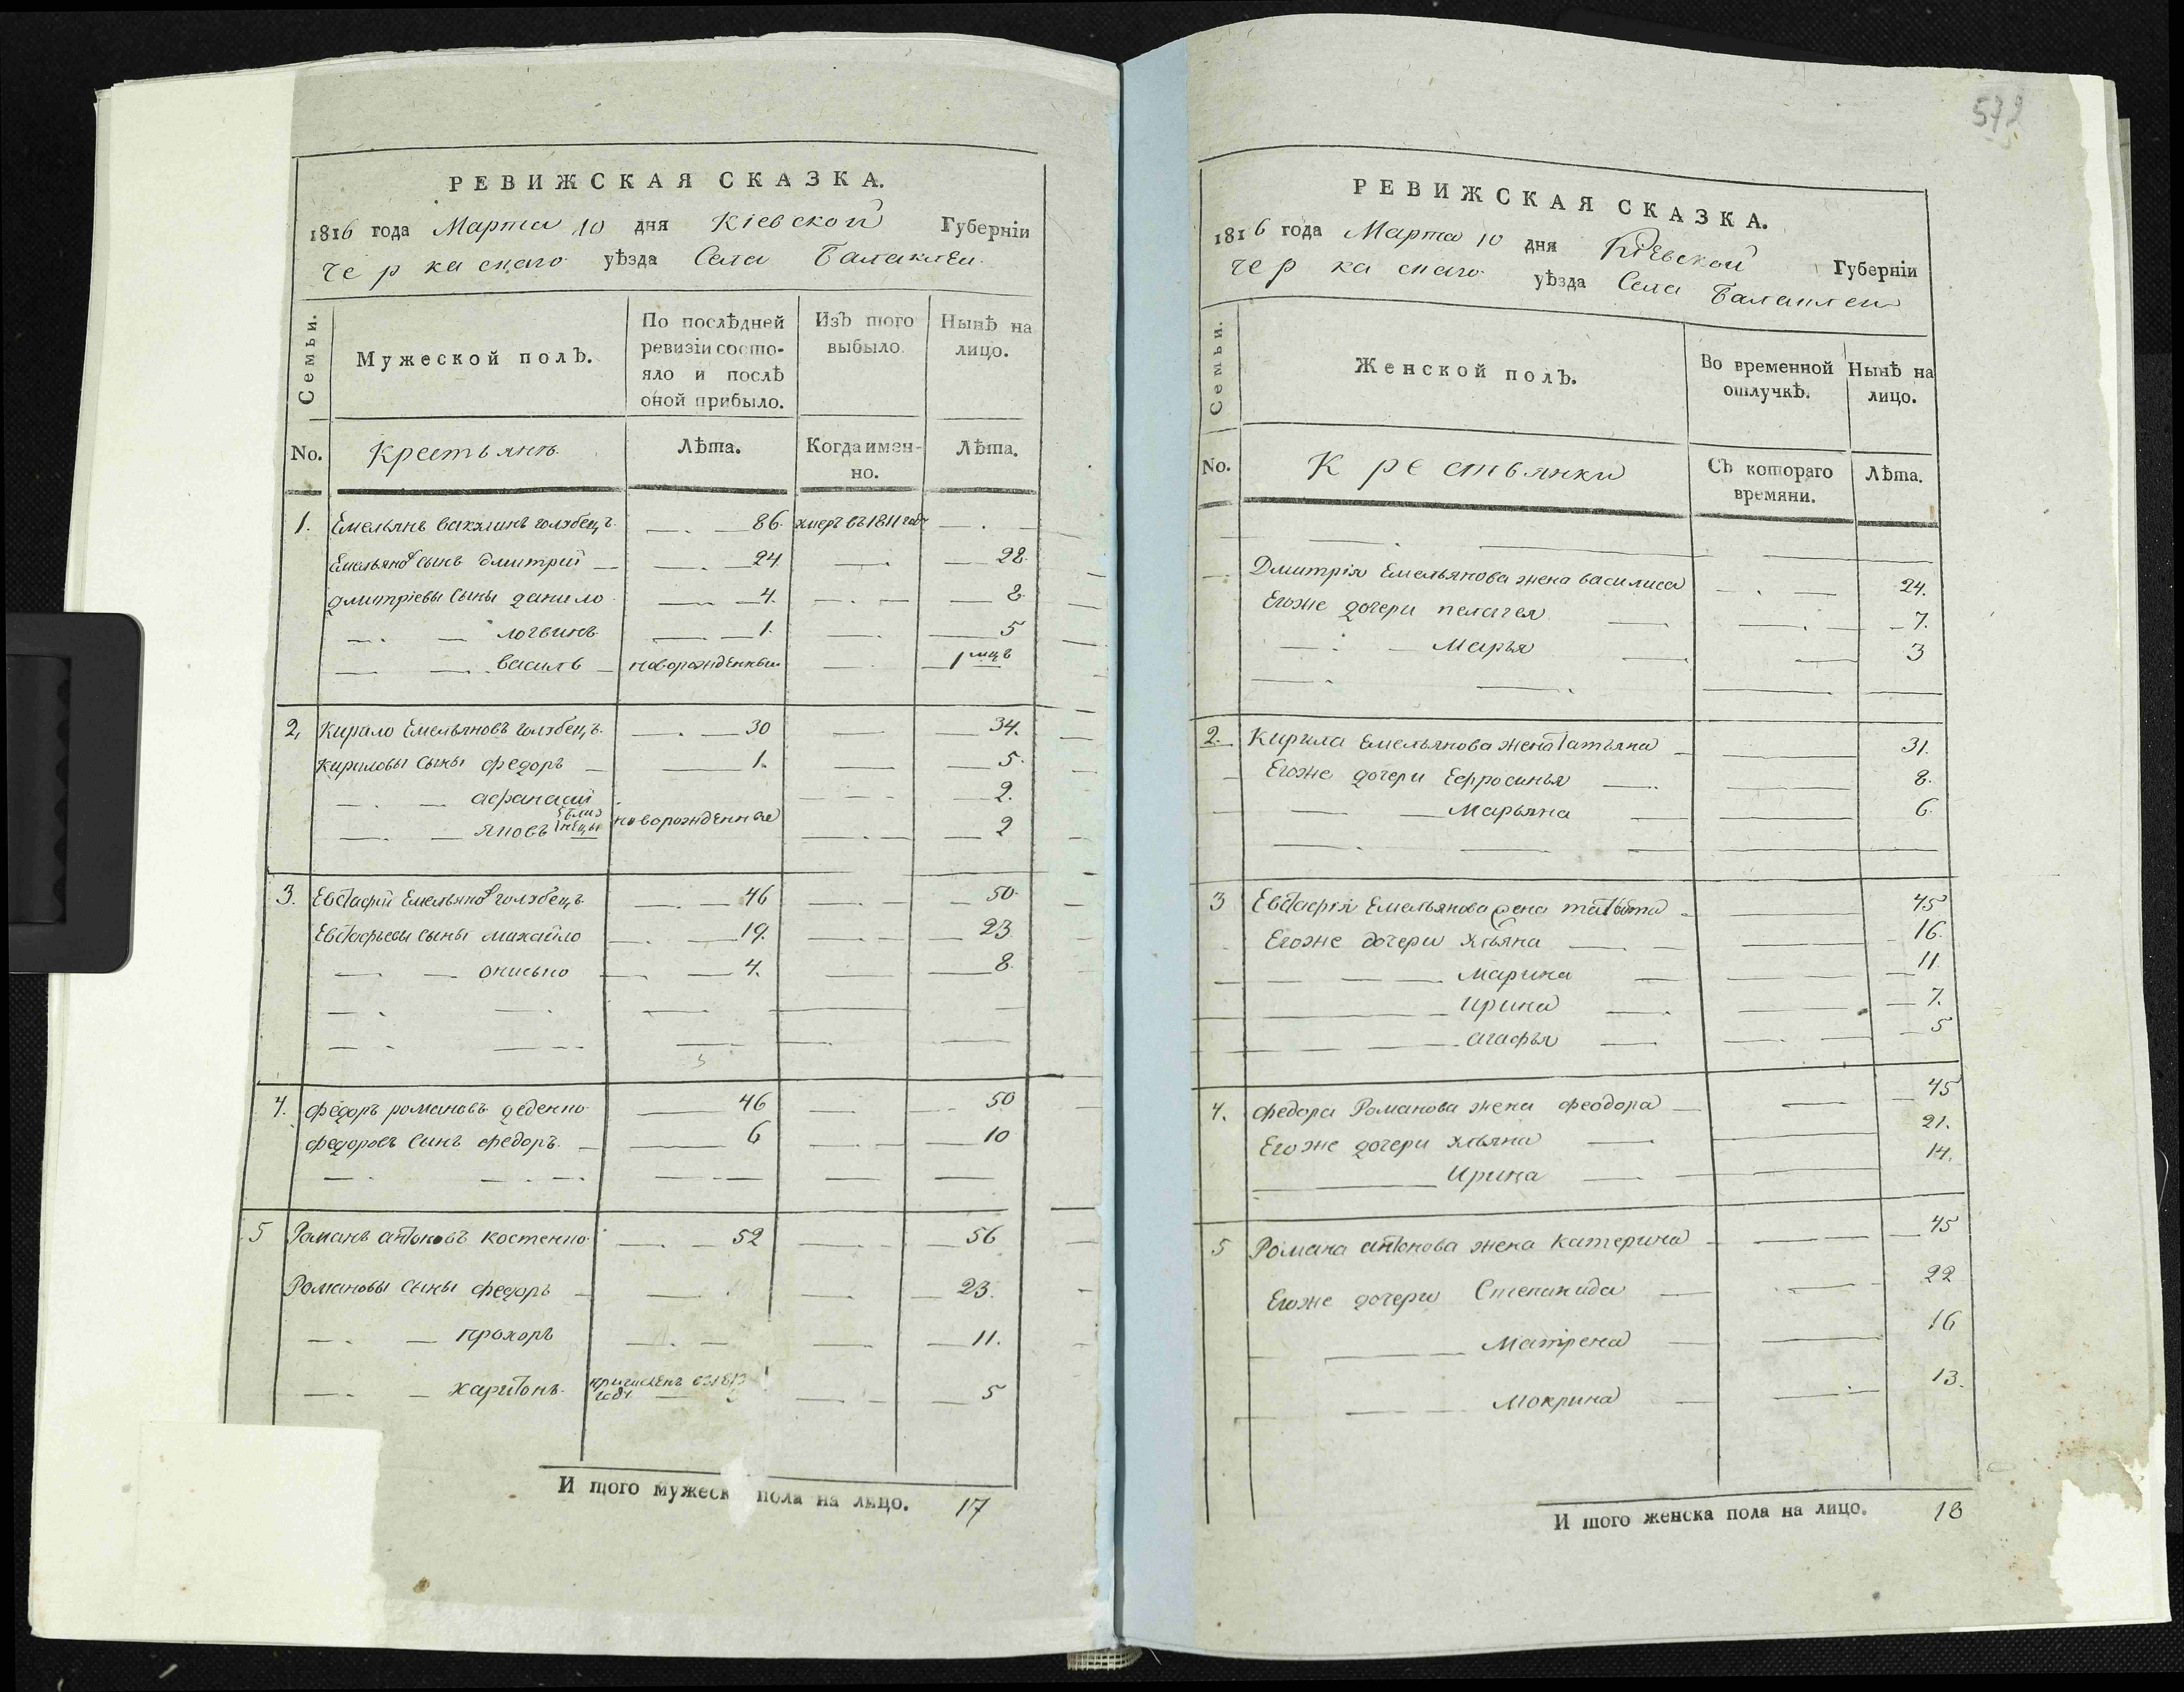 РЕВИЖСКАЯ СКАЗКА.
1816 года Марта 10 дня Кіевской Губерніи
Черкаскаго уѣзда Села Балаклеи
Семьи.
Мужеской полъ.
По послѣдней ревизіи состояло и послѣ оной прибыло.
Изъ того выбыло.
Нынѣ на лицо.
No. Крестьянъ. Лѣта. Когда именно. Лѣта.
1. Емельянъ голубецъ 86. умеръ въ 1811 годѣ
Емельяновъ сынъ дмитрий 24 28
дмитріевы сыны данило 4. 8
логвинъ 1. 5
василь новорожденный 1 мцъ
2, Кирило Емельяновъ голубецъ 30 34.
Кириловы сыны федоръ 1. 5.
афанасий 2.
яковъ близнецы новорожденные 2
3. Евстафий Емельяновъ голубецъ 46 50
Евстафьевы сыны михайло 19. 23
онисько 4. 8
4. федоръ романовъ деденко 46 50
федоровъ сынъ федоръ. 6 10
5 Романъ антоновъ костенко 52 56
Романовы сыны федоръ 23.
прохоръ 11.
харитонъ 5
И того мужеск пола на лицо. 17
572
РЕВИЖСКАЯ СКАЗКА.
1816 года Марта 10 дня Кіевской Губерніи
Черкаскаго уѣзда Села Балаклеи
Семьи.
Женской полъ.
Во временной отлучкѣ.
Нынѣ на лицо.
No. Крестьянки Съ котораго времяни. Лѣта.
Дмитрія Емельянова жена василиса 24.
Егоже дочери пелагея 7.
Марья 3
2. Кирила Емельянова жена Татьяна 31.
Егоже дочери Ефросинья 8.
Марьяна 6
3 Евстафія Емельянова жена 45
Егоже дочери ульяна 16.
Марина 11
Ирина 7.
агафья 5
4. федора Романова жена феодора 45
Егоже дочери ульяна 21.
Ирина 14.
5 Романа антонова жена катерина 45
Егоже дочери Степанида 22
Матрена 16
Мокрина 13.
И того женска пола на лицо. 18